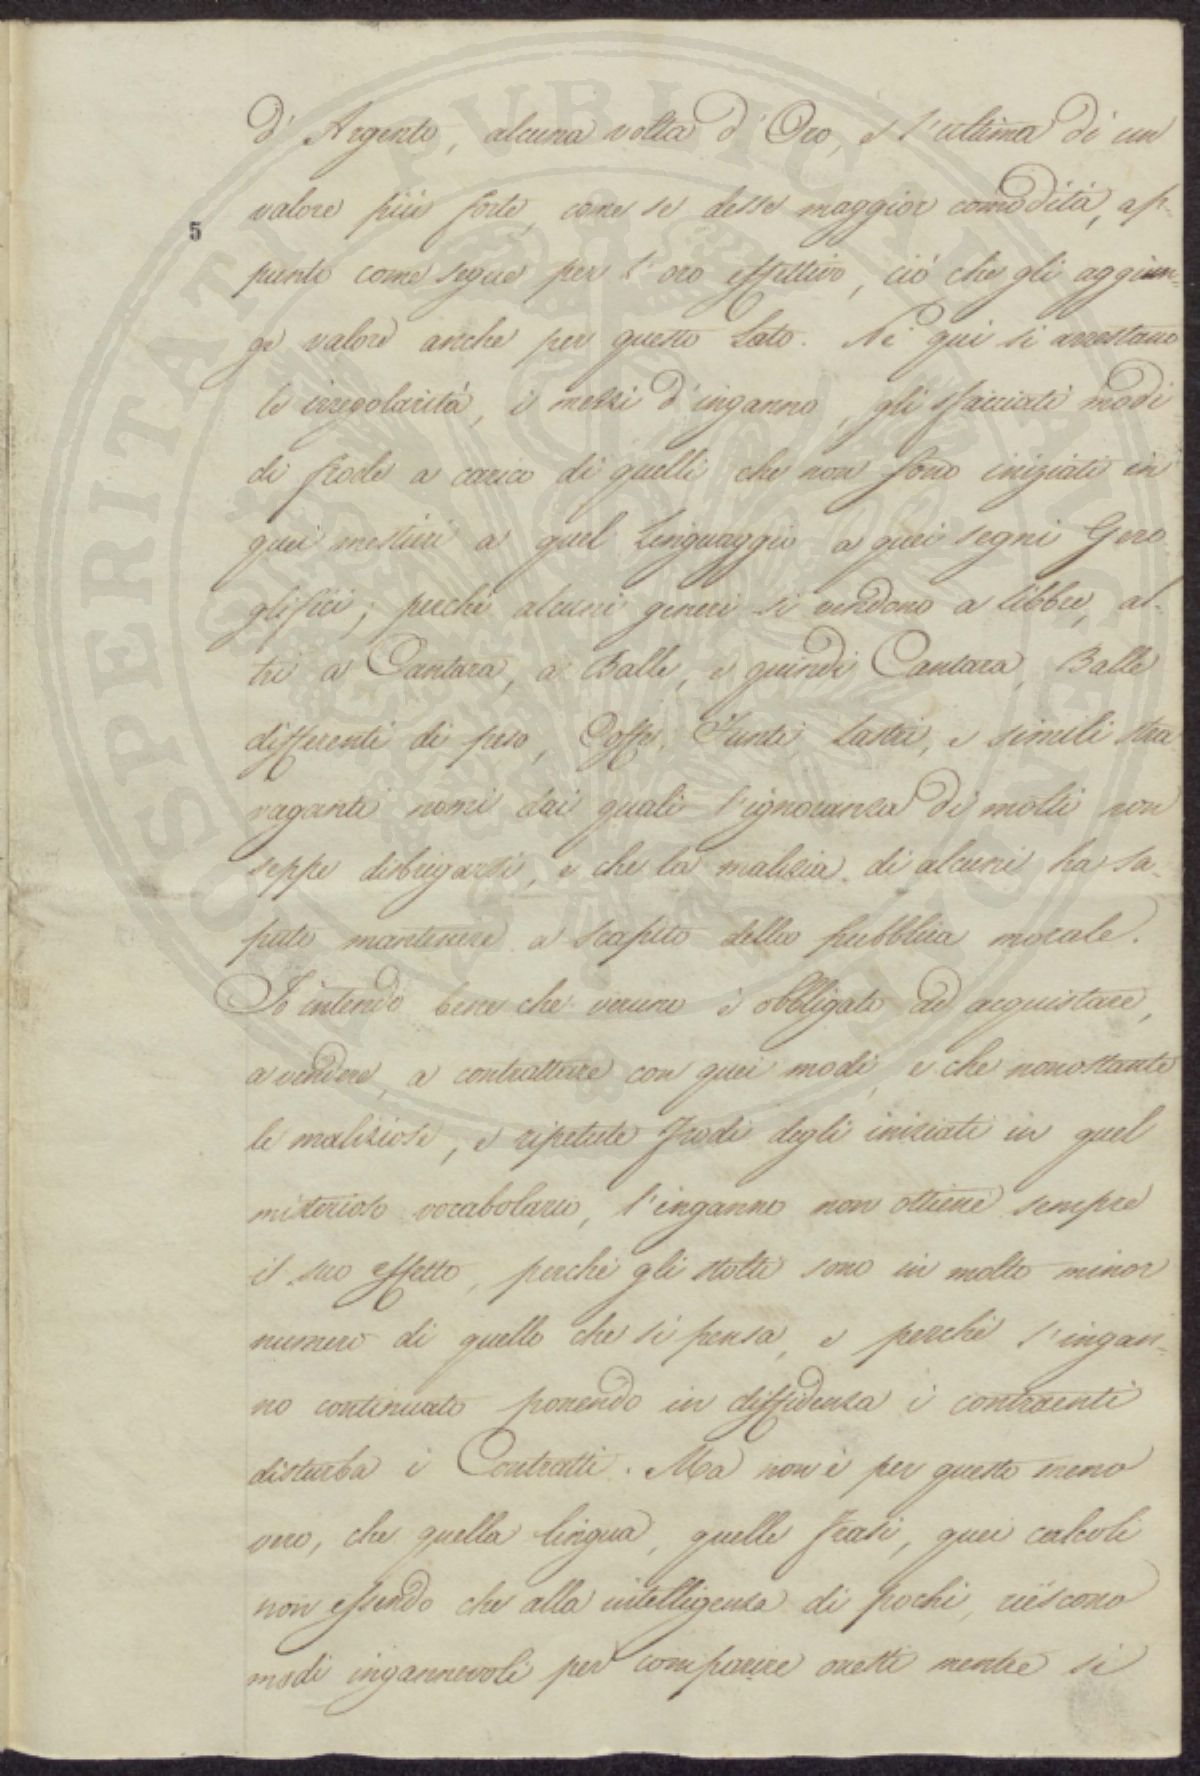 d'Argento, alcuna volta d'Oro, e l'ultima di un
valore più forte, come se desse maggior comodità, ap-
5
punto come segue per l'oro effettivo, ciò che gli aggiun-
ge valore anche per questo Lato. Nè qui si arrestano
le irregolarità, i mezzi d'inganno, gli sfacciati modi
di frode a carico di quelli che non sono iniziati in
quei mestieri a quel Linguaggio a quei segni Gero
glifici; perchè alcuni generi si vendono a libbre, al-
tri a Cantara, a Balle, e quindi Cantara, Balle
differenti di peso, Coffe, Funti Lastri, e simili stra
vaganti nomi dai quali l'ignoranza di molti non
seppe disbrigarsi, e che la malizia di alcuni ha sa-
puto mantenere a scapito della pubblica morale.
Io intendo bene che veruno è obbligato ad acquistare,
a vendere, a contrattare con quei modi, e che nonostante
le maliziose, e ripetute frodi degli iniziati in quel
misterioso vocabolario, l'inganno non ottiene sempre
il suo effetto, perchè gli stolti sono in molto minor
numero di quello che si pensa, e perchè l'ingan-
no continuato ponendo in diffidenza i contraenti
disturba i Contratti. Ma non è per questo meno
vero, che quella lingua, quelle frasi, quei calcoli
non essendo che alla intelligenza di pochi, riescono
modi ingannevoli per comparire onesti mentre si
SPERITATI PUBLICAE AUGENDAE